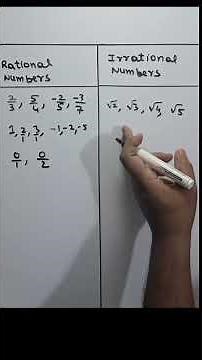 Rational
Numbers
2/3, 5/4, -2/5, -3/7
1, 2/1, 3/1, -1, -2, -5
0/1, 0/2
Irrational
Numbers
√2, √3, √4, √5